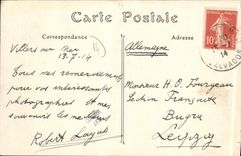 Carte Postale
Correspondance
Adresse
Villers sur Mer
13.7.14
Allemagne
Tous mes remerciements
pour vos intéressantes
photographies et mes
souvenirs les meilleurs
Robert
Monsieur H. O. Fourgeau
Section Française
Bugra
Leipzig
10
CALVADOS